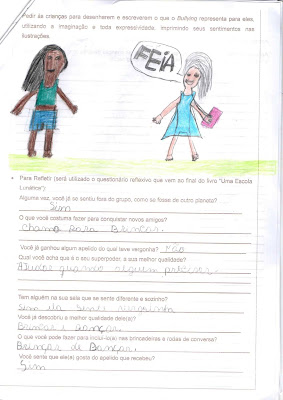 Pedir às crianças para desenharem e escreverem o que o Bullying representa para eles,
utilizando a imaginação e toda expressividade, imprimindo seus sentimentos nas
ilustrações.
FEIA
• Para Refletir (será utilizado o questionário reflexivo que vem ao final do livro "Uma Escola
Lunática"):
Alguma vez, você já se sentiu fora do grupo, como se fosse de outro planeta?
Sim
O que você costuma fazer para conquistar novos amigos?
chamo para Brincar.
Você já ganhou algum apelido do qual teve vergonha? não
Qual você acha que é o seu superpoder, a sua melhor qualidade?
Ajudar quando alguém precisar.
Tem alguém na sua sala que se sente diferente e sozinho?
Sim ela sente vergonha
Você já descobriu a melhor qualidade dele(a)?
Brincar e dançar.
O que você pode fazer para incluí-lo(a) nas brincadeiras e rodas de conversa?
Brincar de Dançar.
Você sente que ele(a) gosta do apelido que recebeu?
Sim